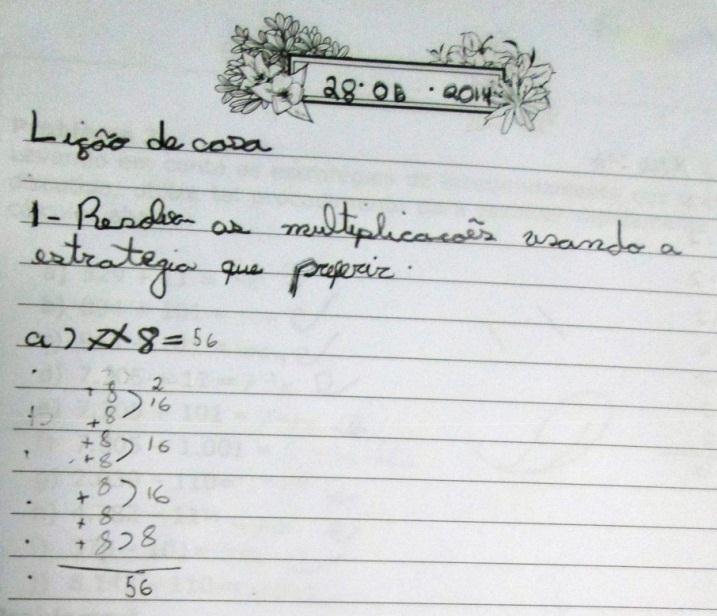 28·08·2014
Lição de casa
1- Resolva as multiplicacões usando a
estrategia que preferir.
a) 7x8=56
2
+8
+8 > 16
+8
+8 > 16
+8
+8 > 16
+8 > 8
56